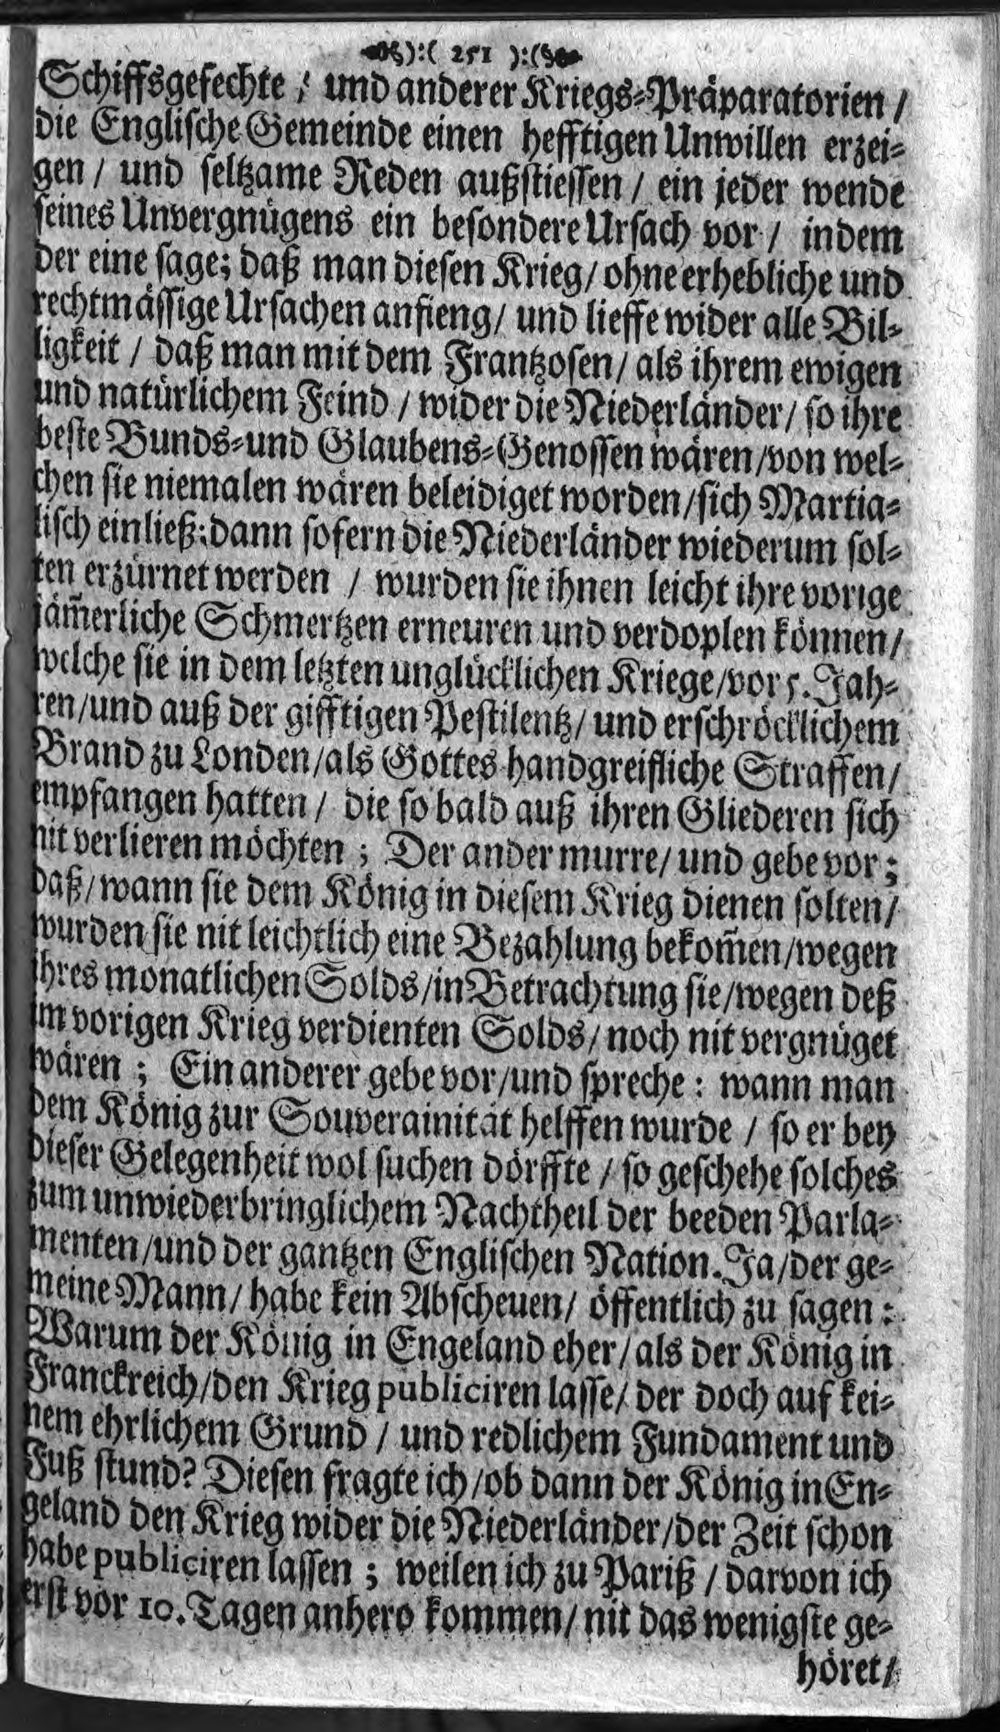 ):( 251 ):(
Schiffsgefechte / und anderer Kriegs-Präparatorien /
die Englische Gemeinde einen hefftigen Unwillen erzei-
gen / und seltzame Reden außstiessen / ein jeder wende
seines Unvergnügens ein besondere Ursach vor / indem
der eine sage; daß man diesen Krieg / ohne erhebliche und
rechtmässige Ursachen anfieng / und lieffe wider alle Bil-
ligkeit / daß man mit dem Frantzosen / als ihrem ewigen
und natürlichem Feind / wider die Niederländer / so ihre
beste Bunds- und Glaubens-Genossen wären / von wel-
chen sie niemalen wären beleidiget worden / sich Martia-
lisch einließ: dann sofern die Niederländer wiederum sol-
ten erzürnet werden / wurden sie ihnen leicht ihre vorige
jäm̃erliche Schmertzen erneuren und verdoplen können /
welche sie in dem letzten unglücklichen Kriege / vor 5. Jah-
ren / und auß der gifftigen Pestilentz / und erschröcklichem
Brand zu Londen / als Gottes handgreifliche Straffen /
empfangen hatten / die so bald auß ihren Gliederen sich
nit verlieren möchten ; Der ander murre / und gebe vor ;
daß / wann sie dem König in diesem Krieg dienen solten /
wurden sie nit leichtlich eine Bezahlung bekom̃en / wegen
ihres monatlichen Solds / in Betrachtung sie / wegen deß
im vorigen Krieg verdienten Solds / noch nit vergnüget
wären ; Ein anderer gebe vor / und spreche : wann man
dem König zur Souverainität helffen wurde / so er bey
dieser Gelegenheit wol suchen dörffte / so geschehe solches
zum unwiederbringlichem Nachtheil der beeden Parla-
menten / und der gantzen Englischen Nation. Ja / der ge-
meine Mann / habe kein Abscheuen / öffentlich zu sagen :
Warum der König in Engeland eher / als der König in
Franckreich / den Krieg publiciren lasse / der doch auf kei-
nem ehrlichem Grund / und redlichem Fundament und
Fuß stund? Diesen fragte ich / ob dann der König in En-
geland den Krieg wider die Niederländer / der Zeit schon
habe publiciren lassen ; weilen ich zu Pariß / darvon ich
erst vor 10. Tagen anhero kommen / nit das wenigste ge-
höret /